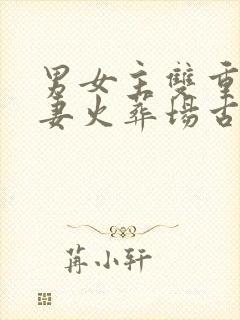 男女主雙重
妻火葬場古
苒小轩